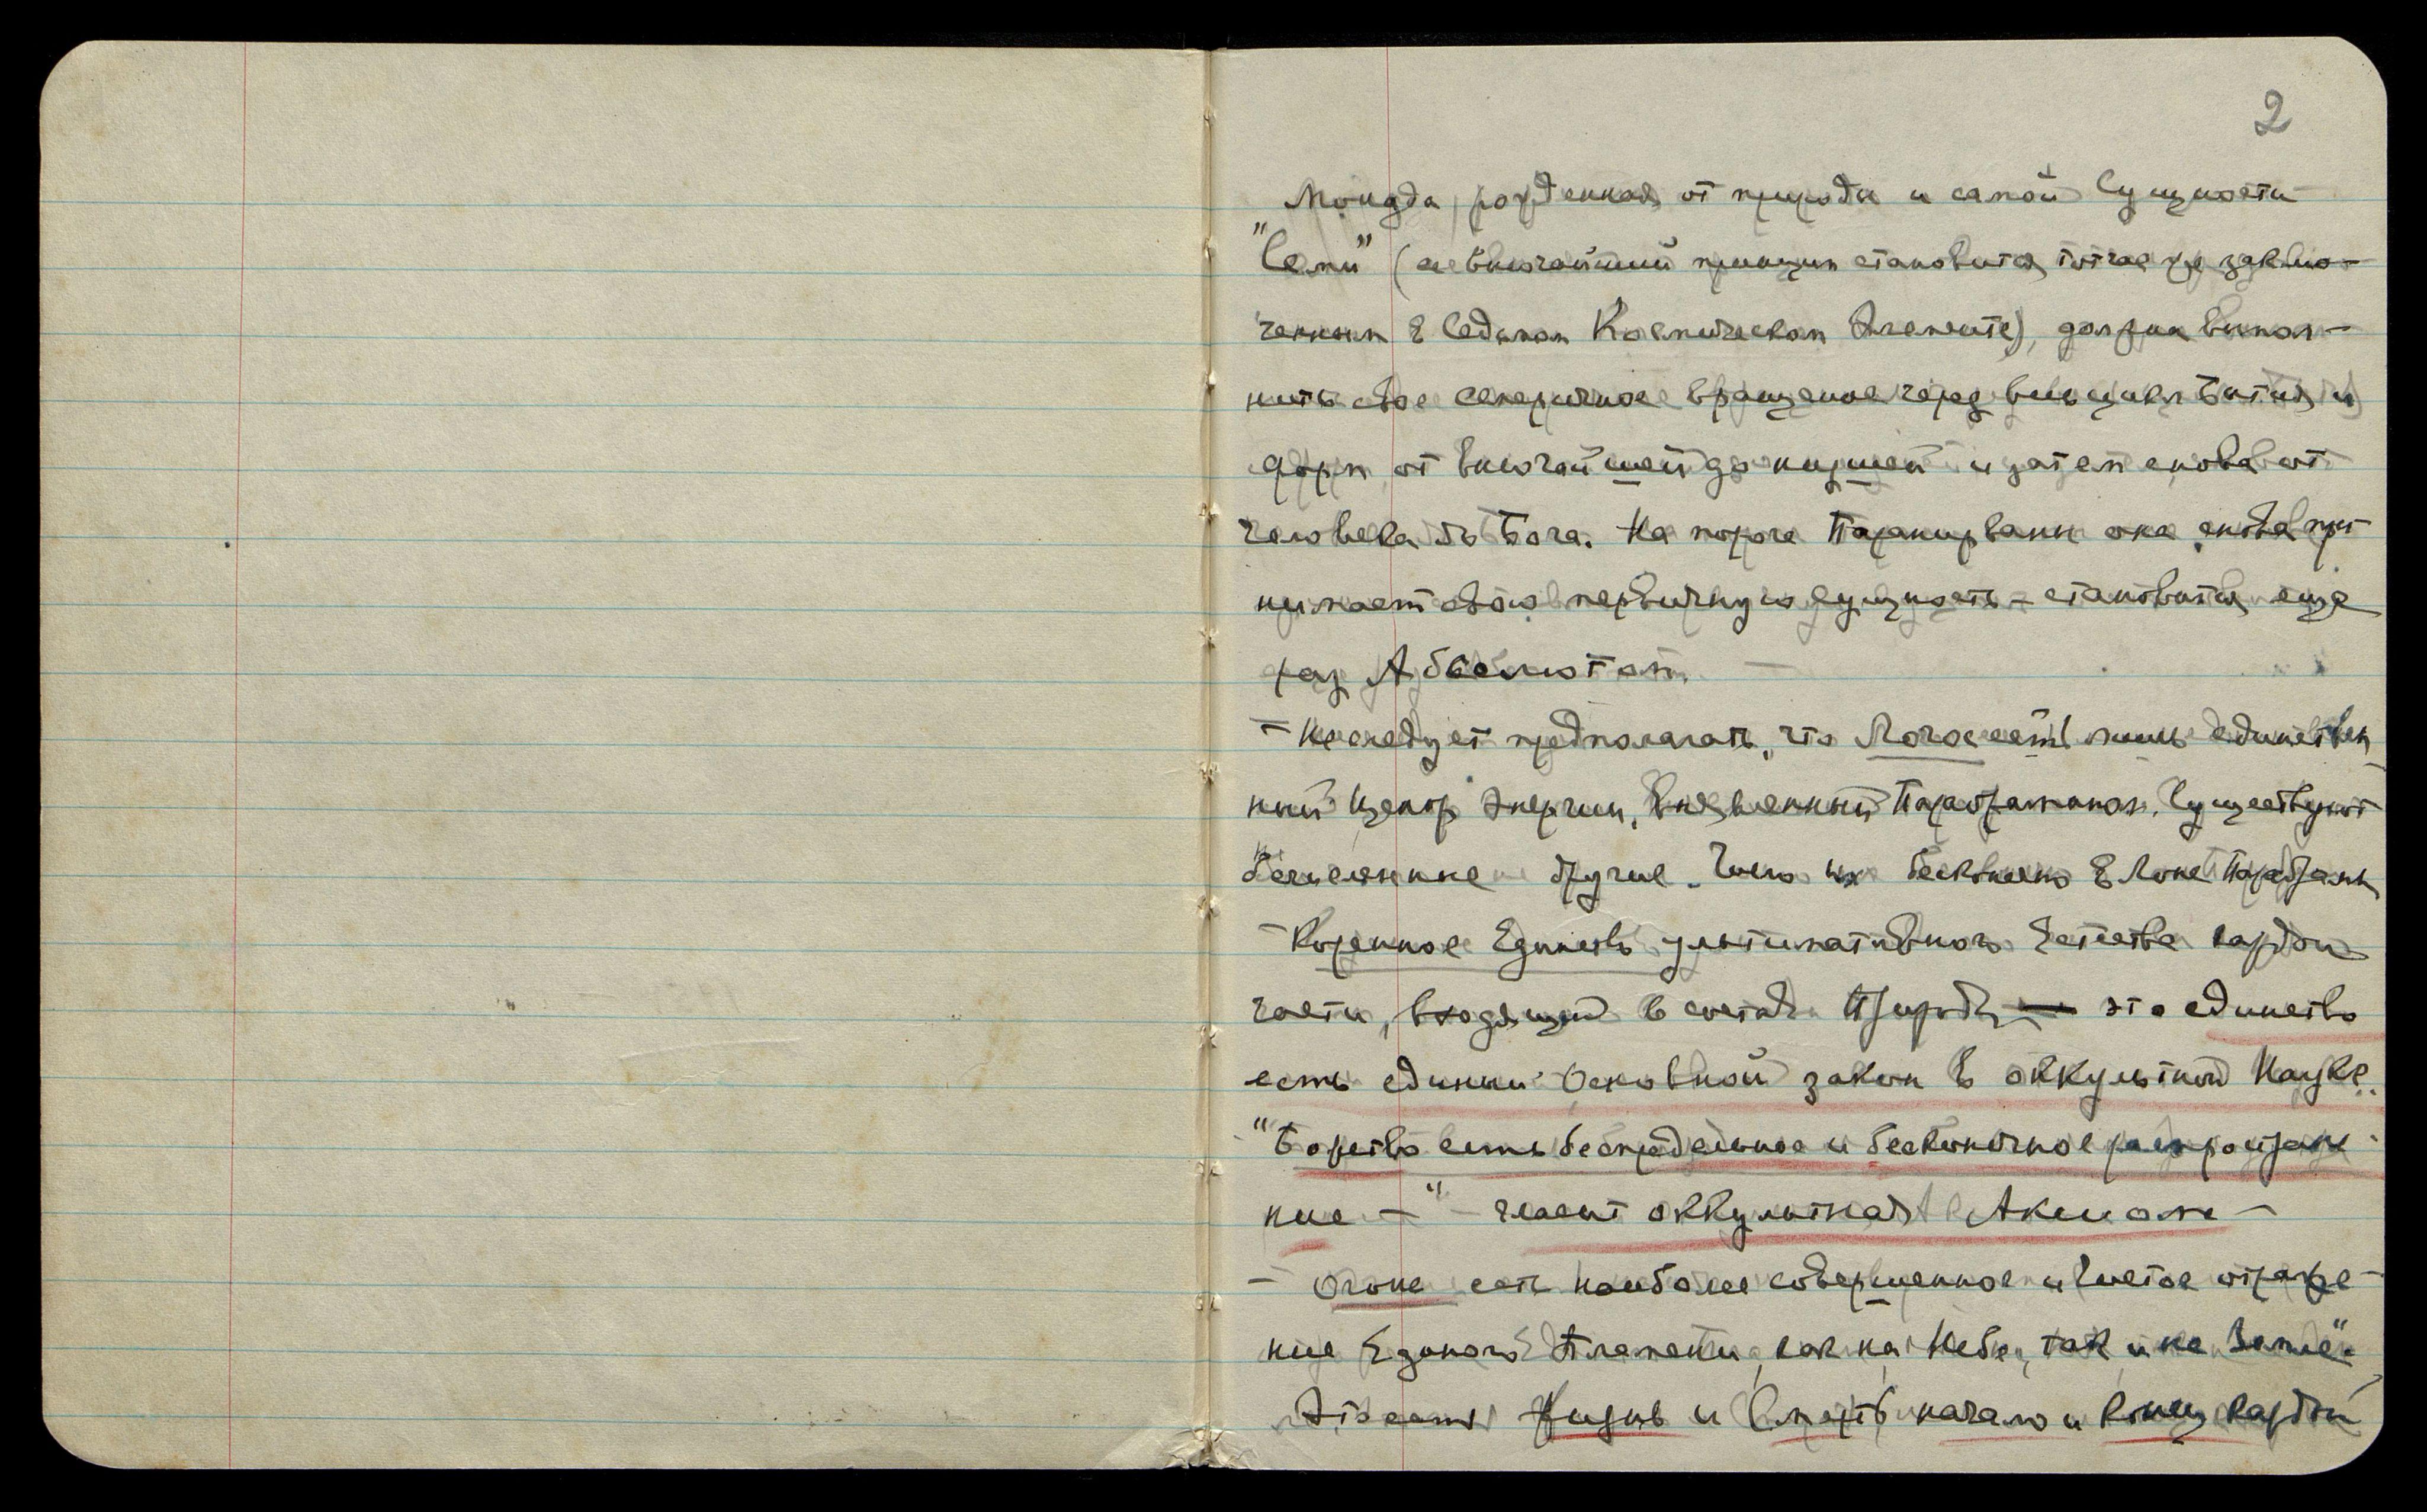 2
Монада, рожденная от природы и самой Сущности
"Семи" (ее высочайший принцип становится тотчас же заклю-
ченным в Седьмом Космическом Элементе), должна выпол-
нить свое семеричное вращение через весь цикл Бытия и
форм, от высочайшей до низшей и затем снова от
человека до Бога. На пороге Паранирваны она снова при
нимает свою первичную сущность – становится еще
раз Абсолютом.
– Не следует предполагать, что Логос есть лишь единствен
ный Центр Энергии, выявленный Парабраманом. Существуют
бесчисленные другие. Число их бесконечно в Лоне Парабрамы
– Коренное Единство ультимативного Естества каждой
части, входящей в состав Природы — это единство
есть единый Основной закон в оккультной Науке.
"Божество есть беспредельное и бесконечное распростране
ние –" гласит оккультная Аксиома –
– Огонь есть наиболее совершенное и чистое отраже-
ние Единого Пламени, как на Небе, так и на Земле".
Это есть Жизнь и Смерть, начало и конец каждой